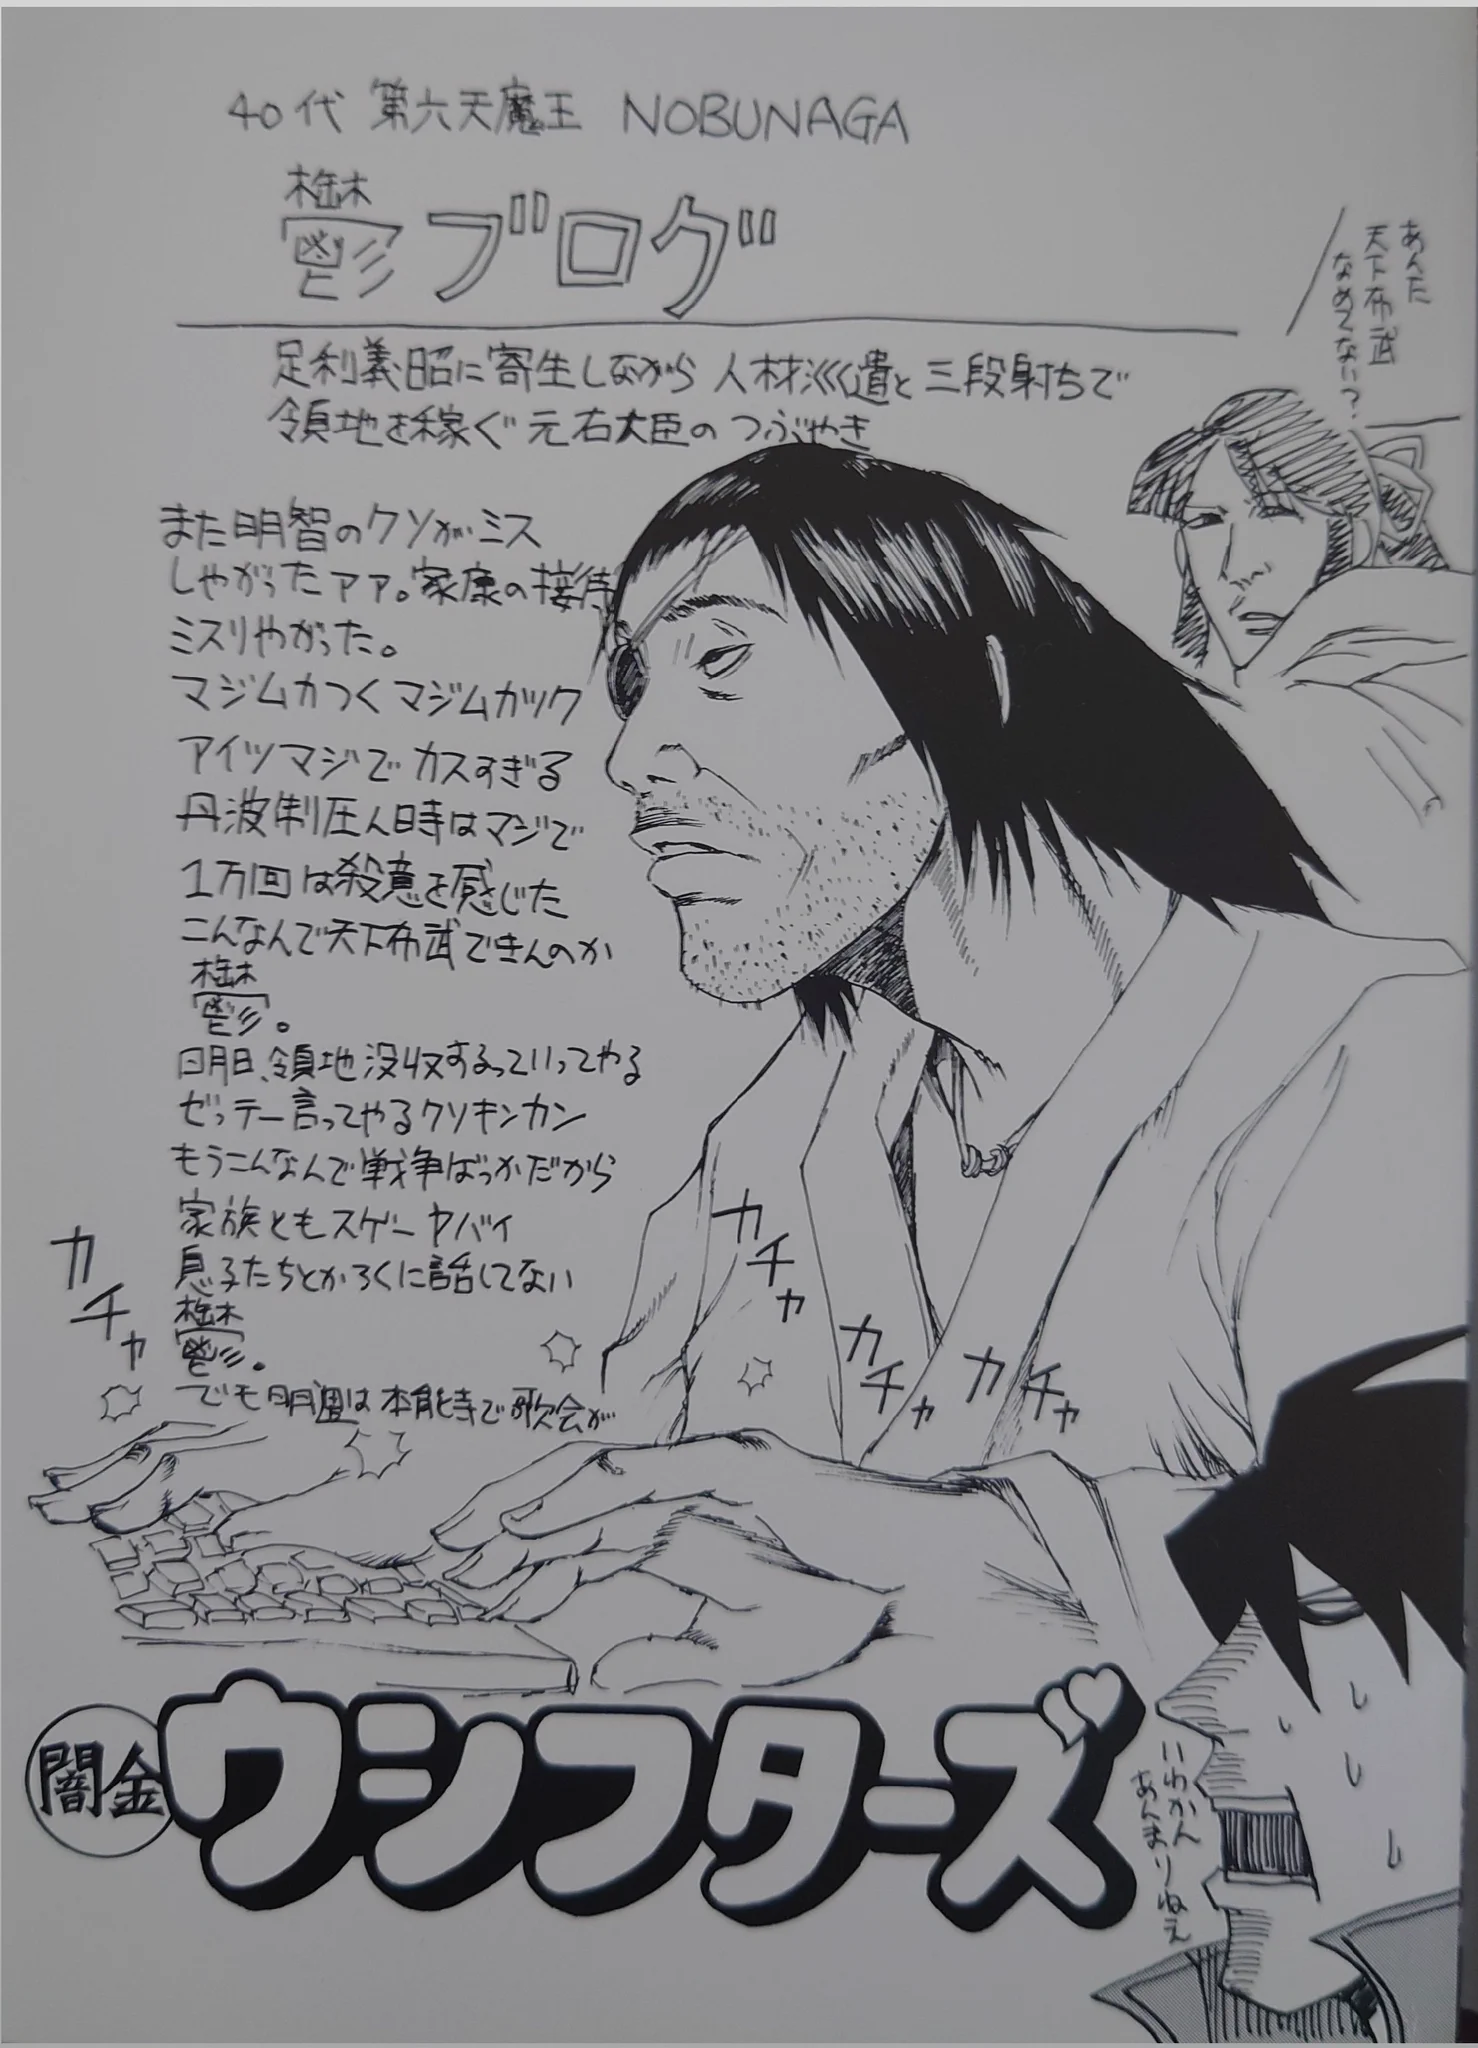 40代 第六天魔王 NOBUNAGA
鬱ブログ
足利義昭に寄生しながら 人材派遣と 三段射ちで
領地を稼ぐ 元右大臣の つぶやき
あんた
天下布武
なめてない?
また明智のクソがミス
しやがったァァ。家康の接待
ミスりやがった。
マジムカつくマジムカツク
アイツマジでカスすぎる
丹波制圧ん時はマジで
1万回は殺意を感じた
こんなんで天下布武できんのか
鬱。
明日、領地没収するっていってやる
ゼッテー言ってやるクソキンカン
もうこんなんで戦争ばっかだから
家族ともスゲーヤバイ
息子たちとかろくに話してない
鬱。
でも明週は本能寺で歌会が
カチャ
カチャ
カチャ
カチャ
闇金
ウシフターズ
いわかん
あんまりねえ